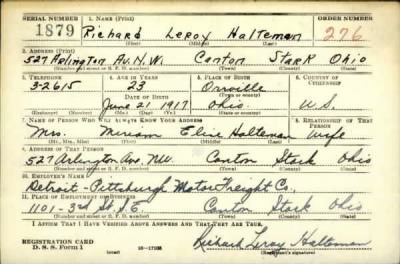 SERIAL NUMBER 1. NAME (Print) ORDER NUMBER
1879 Richard Leroy Halteman 276
(First) (Middle) (Last)
2. ADDRESS (Print)
527 Arlington Av. N.W. Canton Stark Ohio
(Number and street or R. F. D. number) (Town) (County) (State)
3. TELEPHONE 4. AGE IN YEARS 5. PLACE OF BIRTH 6. COUNTRY OF CITIZENSHIP
3-2615 23 Orrville
DATE OF BIRTH (Town or county)
June 21 1917 Ohio U.S.
(Exchange) (Number) (Mo.) (Day) (Yr.) (State or country)
7. NAME OF PERSON WHO WILL ALWAYS KNOW YOUR ADDRESS 8. RELATIONSHIP OF THAT PERSON
Mrs. Miriam Halteman Wife
(Mr., Mrs., Miss) (First) (Middle) (Last)
9. ADDRESS OF THAT PERSON
527 Arlington Ave. NW. Canton Stark Ohio
(Number and street or R. F. D. number) (Town) (County) (State)
10. EMPLOYER'S NAME
Detroit-Pittsburgh Motor Freight Co.,
11. PLACE OF EMPLOYMENT OR BUSINESS
1101-3rd St. S.E. Canton Stark Ohio
(Number and street or R. F. D. number) (Town) (County) (State)
I AFFIRM THAT I HAVE VERIFIED ABOVE ANSWERS AND THAT THEY ARE TRUE.
REGISTRATION CARD
D. S. S. Form 1 Richard Leroy Halteman
(Registrant's signature)